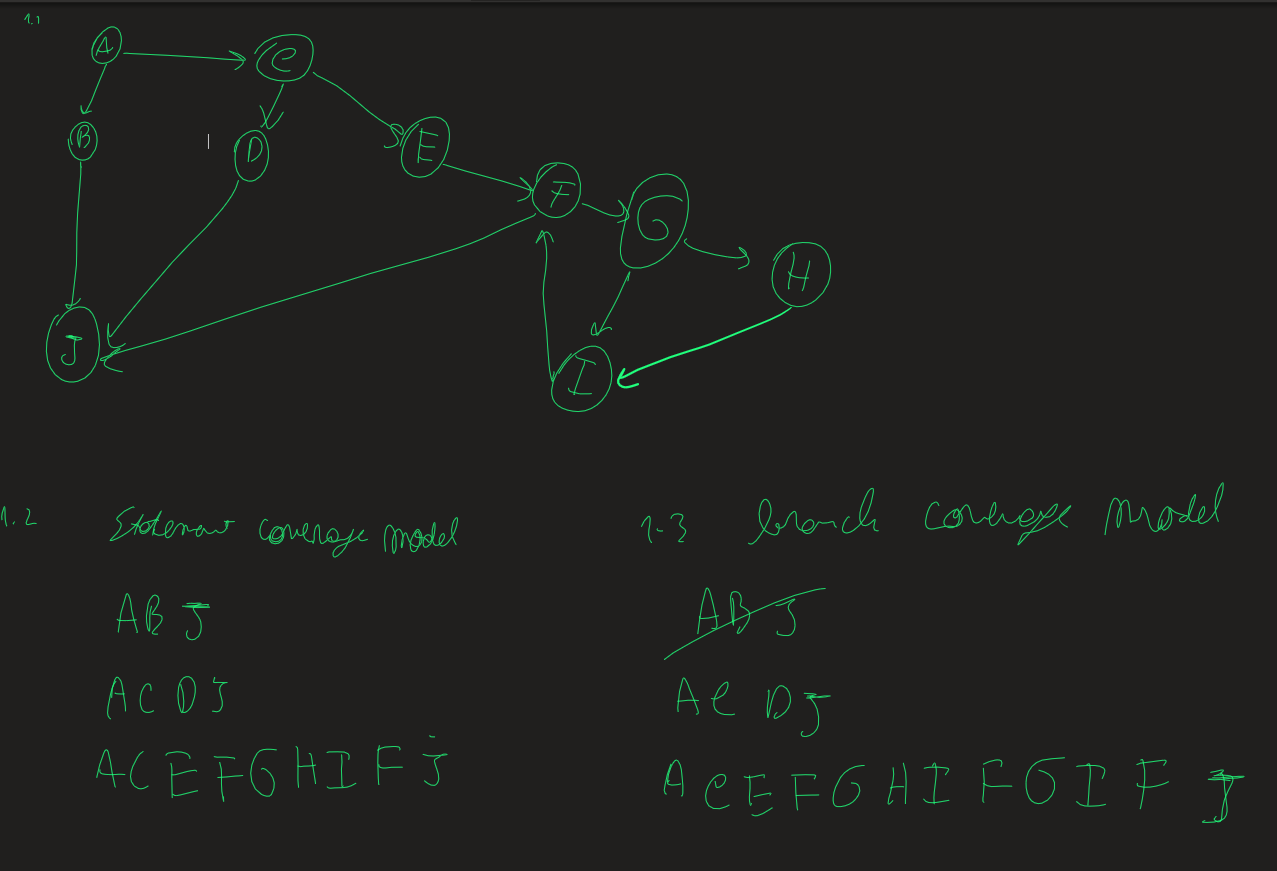 1.1
A
C
B
D
E
F
G
H
J
I
1.2 Statement coverage model
A B J
A C D J
A C E F G H I F J
1-3 branch coverage model
A B J
A C D J
A C E F G H I F G I F J